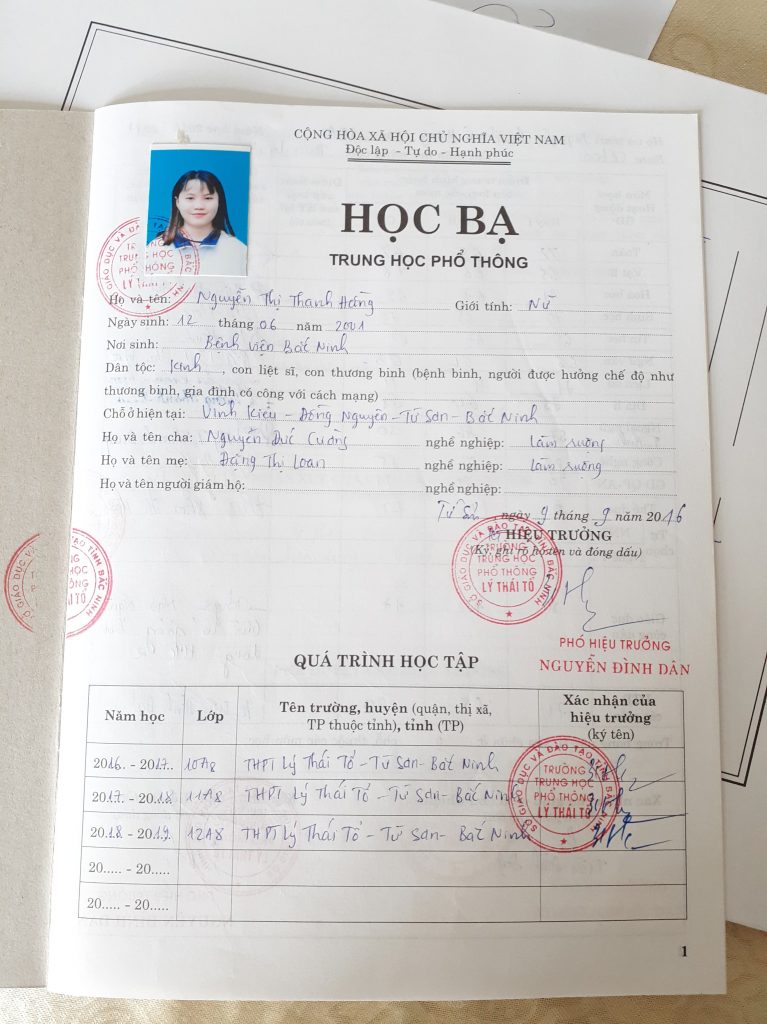 CỘNG HÒA XÃ HỘI CHỦ NGHĨA VIỆT NAM
Độc lập - Tự do - Hạnh phúc
HỌC BẠ
TRUNG HỌC PHỔ THÔNG
Họ và tên: Nguyễn Thị Thanh Hằng Giới tính: Nữ
Ngày sinh: 12 tháng 06 năm 2001
Nơi sinh: Bệnh viện Bắc Ninh
Dân tộc: Kinh, con liệt sĩ, con thương binh (bệnh binh, người được hưởng chế độ như
thương binh, gia đình có công với cách mạng)
Chỗ ở hiện tại: Vĩnh Kiều - Đồng Nguyên - Từ Sơn - Bắc Ninh
Họ và tên cha: Nguyễn Đức Cường nghề nghiệp: làm ruộng
Họ và tên mẹ: Đặng Thị Loan nghề nghiệp: làm ruộng
Họ và tên người giám hộ: nghề nghiệp:
Từ Sơn ngày 9 tháng 9 năm 2016
HIỆU TRƯỞNG
(Ký, ghi rõ họ tên và đóng dấu)
SỞ GIÁO DỤC VÀ ĐÀO TẠO TỈNH BẮC NINH
TRƯỜNG
TRUNG HỌC
PHỔ THÔNG
LÝ THÁI TỔ
PHÓ HIỆU TRƯỞNG
NGUYỄN ĐÌNH DÂN
QUÁ TRÌNH HỌC TẬP
Năm học Lớp Tên trường, huyện (quận, thị xã, TP thuộc tỉnh), tỉnh (TP) Xác nhận của hiệu trưởng (ký tên)
2016. - 2017.. 10A8 THPT Lý Thái Tổ - Từ Sơn - Bắc Ninh
2017. - 2018 11A8 THPT Lý Thái Tổ - Từ Sơn - Bắc Ninh
2018 - 2019. 12A8 THPT Lý Thái Tổ - Từ Sơn - Bắc Ninh
20..... - 20.....
20..... - 20.....
SỞ GIÁO DỤC VÀ ĐÀO TẠO TỈNH BẮC NINH
TRƯỜNG
TRUNG HỌC
PHỔ THÔNG
LÝ THÁI TỔ
1